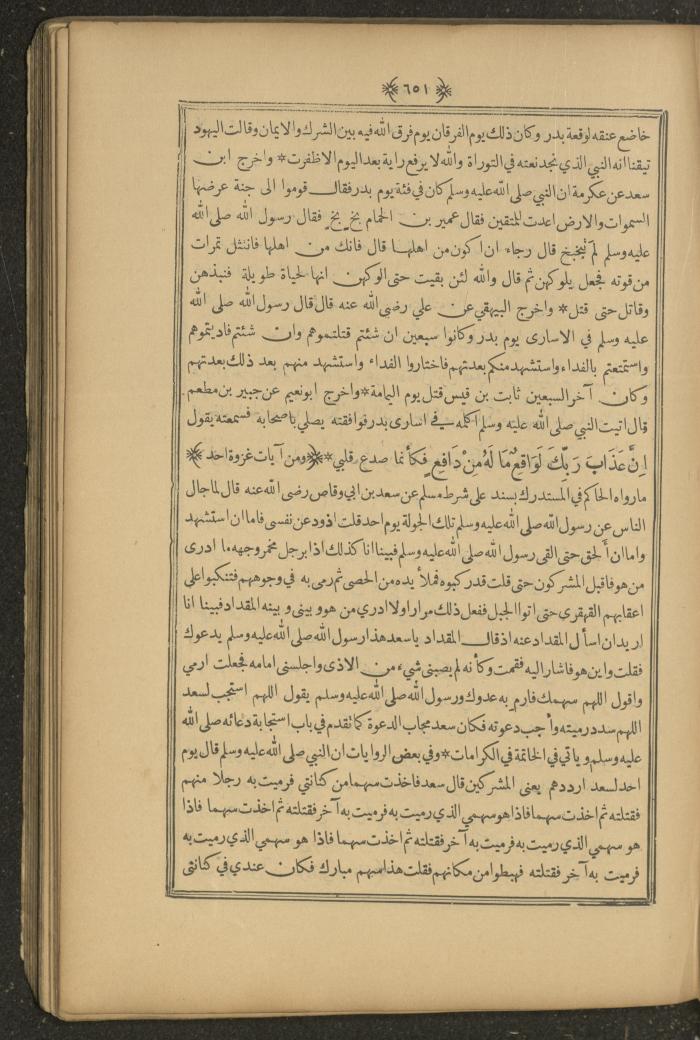 ٦٥١
خاضع عنقه لوقعة بدر وكان ذلك يوم الفرقان يوم فرق الله فيه بين الشرك والايمان وقالت اليهود
تيقنا انه النبي الذي نجد نعته في التوراة والله لا يرفع راية بعد اليوم الا ظفرت * واخرج ابن
سعد عن عكرمة ان النبي صلى الله عليه وسلم كان في فئة يوم بدر فقال قوموا الى جنة عرضها
السموات والارض اعدت للمتقين فقال عمير بن الحمام بخ بخ فقال رسول الله صلى الله
عليه وسلم لم تبخبخ قال رجاء ان اكون من اهلها قال فانك من اهلها فانتثل تمرات
من قوته فجعل يلوكهن ثم قال والله لئن بقيت حتى الوكهن انها لحياة طويلة فنبذهن
وقاتل حتى قتل * واخرج البيهقي عن علي رضى الله عنه قال قال رسول الله صلى الله
عليه وسلم في الاسارى يوم بدر وكانوا سبعين ان شئتم قتلتموهم وان شئتم فاديتموهم
واستمتعتم بالفداء واستشهد منكم بعدتهم فاختاروا الفداء واستشهد منهم بعد ذلك بعدتهم
وكان آخر السبعين ثابت بن قيس قتل يوم اليمامة * واخرج ابو نعيم عن جبير بن مطعم
قال اتيت النبي صلى الله عليه وسلم اكلمه في اسارى بدر فوافقته يصلي باصحابه فسمعته يقول
اِنَّ عَذَابَ رَبِّكَ لَوَاقِعٌ مَا لَهُ مِنْ دَافِعٍ فكأنما صدع قلبي * ومن آيات غزوة احد
ما رواه الحاكم في المستدرك بسند على شرط مسلم عن سعد بن ابي وقاص رضى الله عنه قال لما جال
الناس عن رسول الله صلى الله عليه وسلم تلك الجولة يوم احد قلت اذود عن نفسى فاما ان استشهد
واما ان ألحق حتى القى رسول الله صلى الله عليه وسلم فبينا انا كذلك اذا برجل مخمر وجهه ما ادرى
من هو فاقبل المشركون حتى قلت قد ركبوه فملأ يده من الحصى ثم رمى به في وجوههم فتنكبوا على
اعقابهم القهقرى حتى اتوا الجبل ففعل ذلك مرارا ولا ادري من هو وبينى وبينه المقداد فبينا انا
اريد ان اسأل المقداد عنه اذ قال المقداد يا سعد هذا رسول الله صلى الله عليه وسلم يدعوك
فقلت واين هو فاشار اليه فقمت وكأنه لم يصبنى شيء من الاذى واجلسنى امامه فجعلت ارمي
واقول اللهم سهمك فارم به عدوك ورسول الله صلى الله عليه وسلم يقول اللهم استجب لسعد
اللهم سدد رميته وأجب دعوته فكان سعد مجاب الدعوة كما تقدم في باب استجابة دعائه صلى الله
عليه وسلم وياتي في الخاتمة في الكرامات * وفي بعض الروايات ان النبي صلى الله عليه وسلم قال يوم
احد لسعد ارددهم يعنى المشركين قال سعد فاخذت سهما من كنانتي فرميت به رجلا منهم
فقتلته ثم اخذت سهما فاذا هو سهمي الذي رميت به فرميت به آخر فقتلته ثم اخذت سهما فاذا
هو سهمي الذي رميت به فرميت به آخر فقتلته ثم اخذت سهما فاذا هو سهمي الذي رميت به
فرميت به آخر فقتلته فهبطوا من مكانهم فقلت هذا سهم مبارك فكان عندي في كنانتى